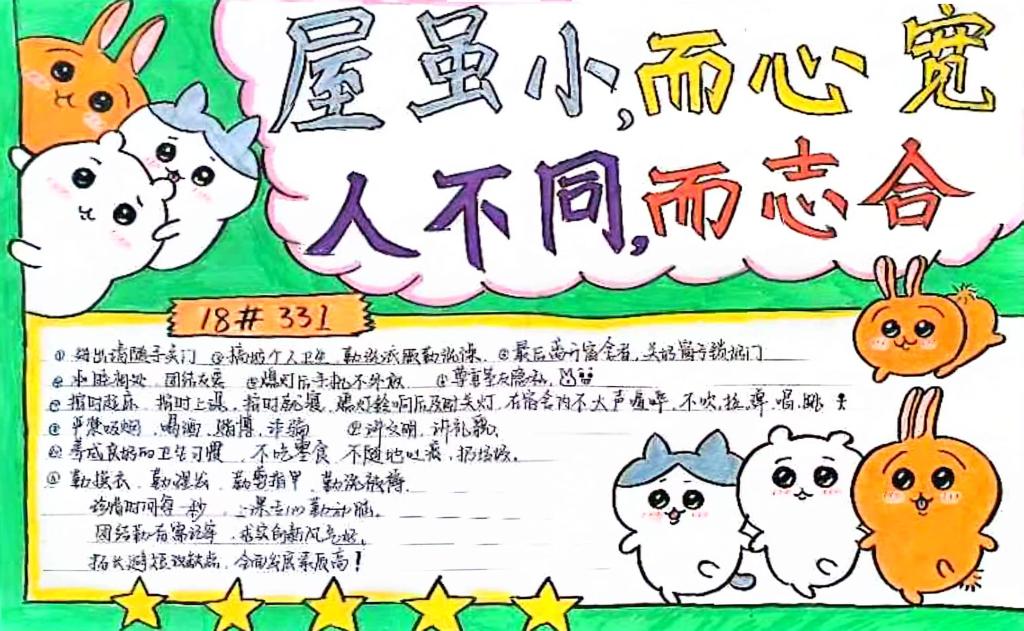 屋虽小,而心宽
人不同,而志合
18# 331
①进出请随手关门 ②搞好个人卫生，勤洗衣服勤洗澡。③最后离开宿舍者，关好窗子锁好门
和睦相处，团结友爱 熄灯后手机不外放 尊重室友隐私，
按时起床，按时上课，按时就寝，熄灯铃响后及时关灯，在宿舍内不大声喧哗，不吹,拉,弹,唱,跳
严禁吸烟、喝酒、赌博、诈骗 讲文明，讲礼貌。
养成良好的卫生习惯，不吃零食，不随地吐痰，扔垃圾。
勤换衣、勤理发、勤剪指甲、勤洗被褥。
珍惜时间每一秒，上课专心勤动脑。
团结勤奋 ，求实创新风气好，
扬长避短改缺点，全面发展素质高！